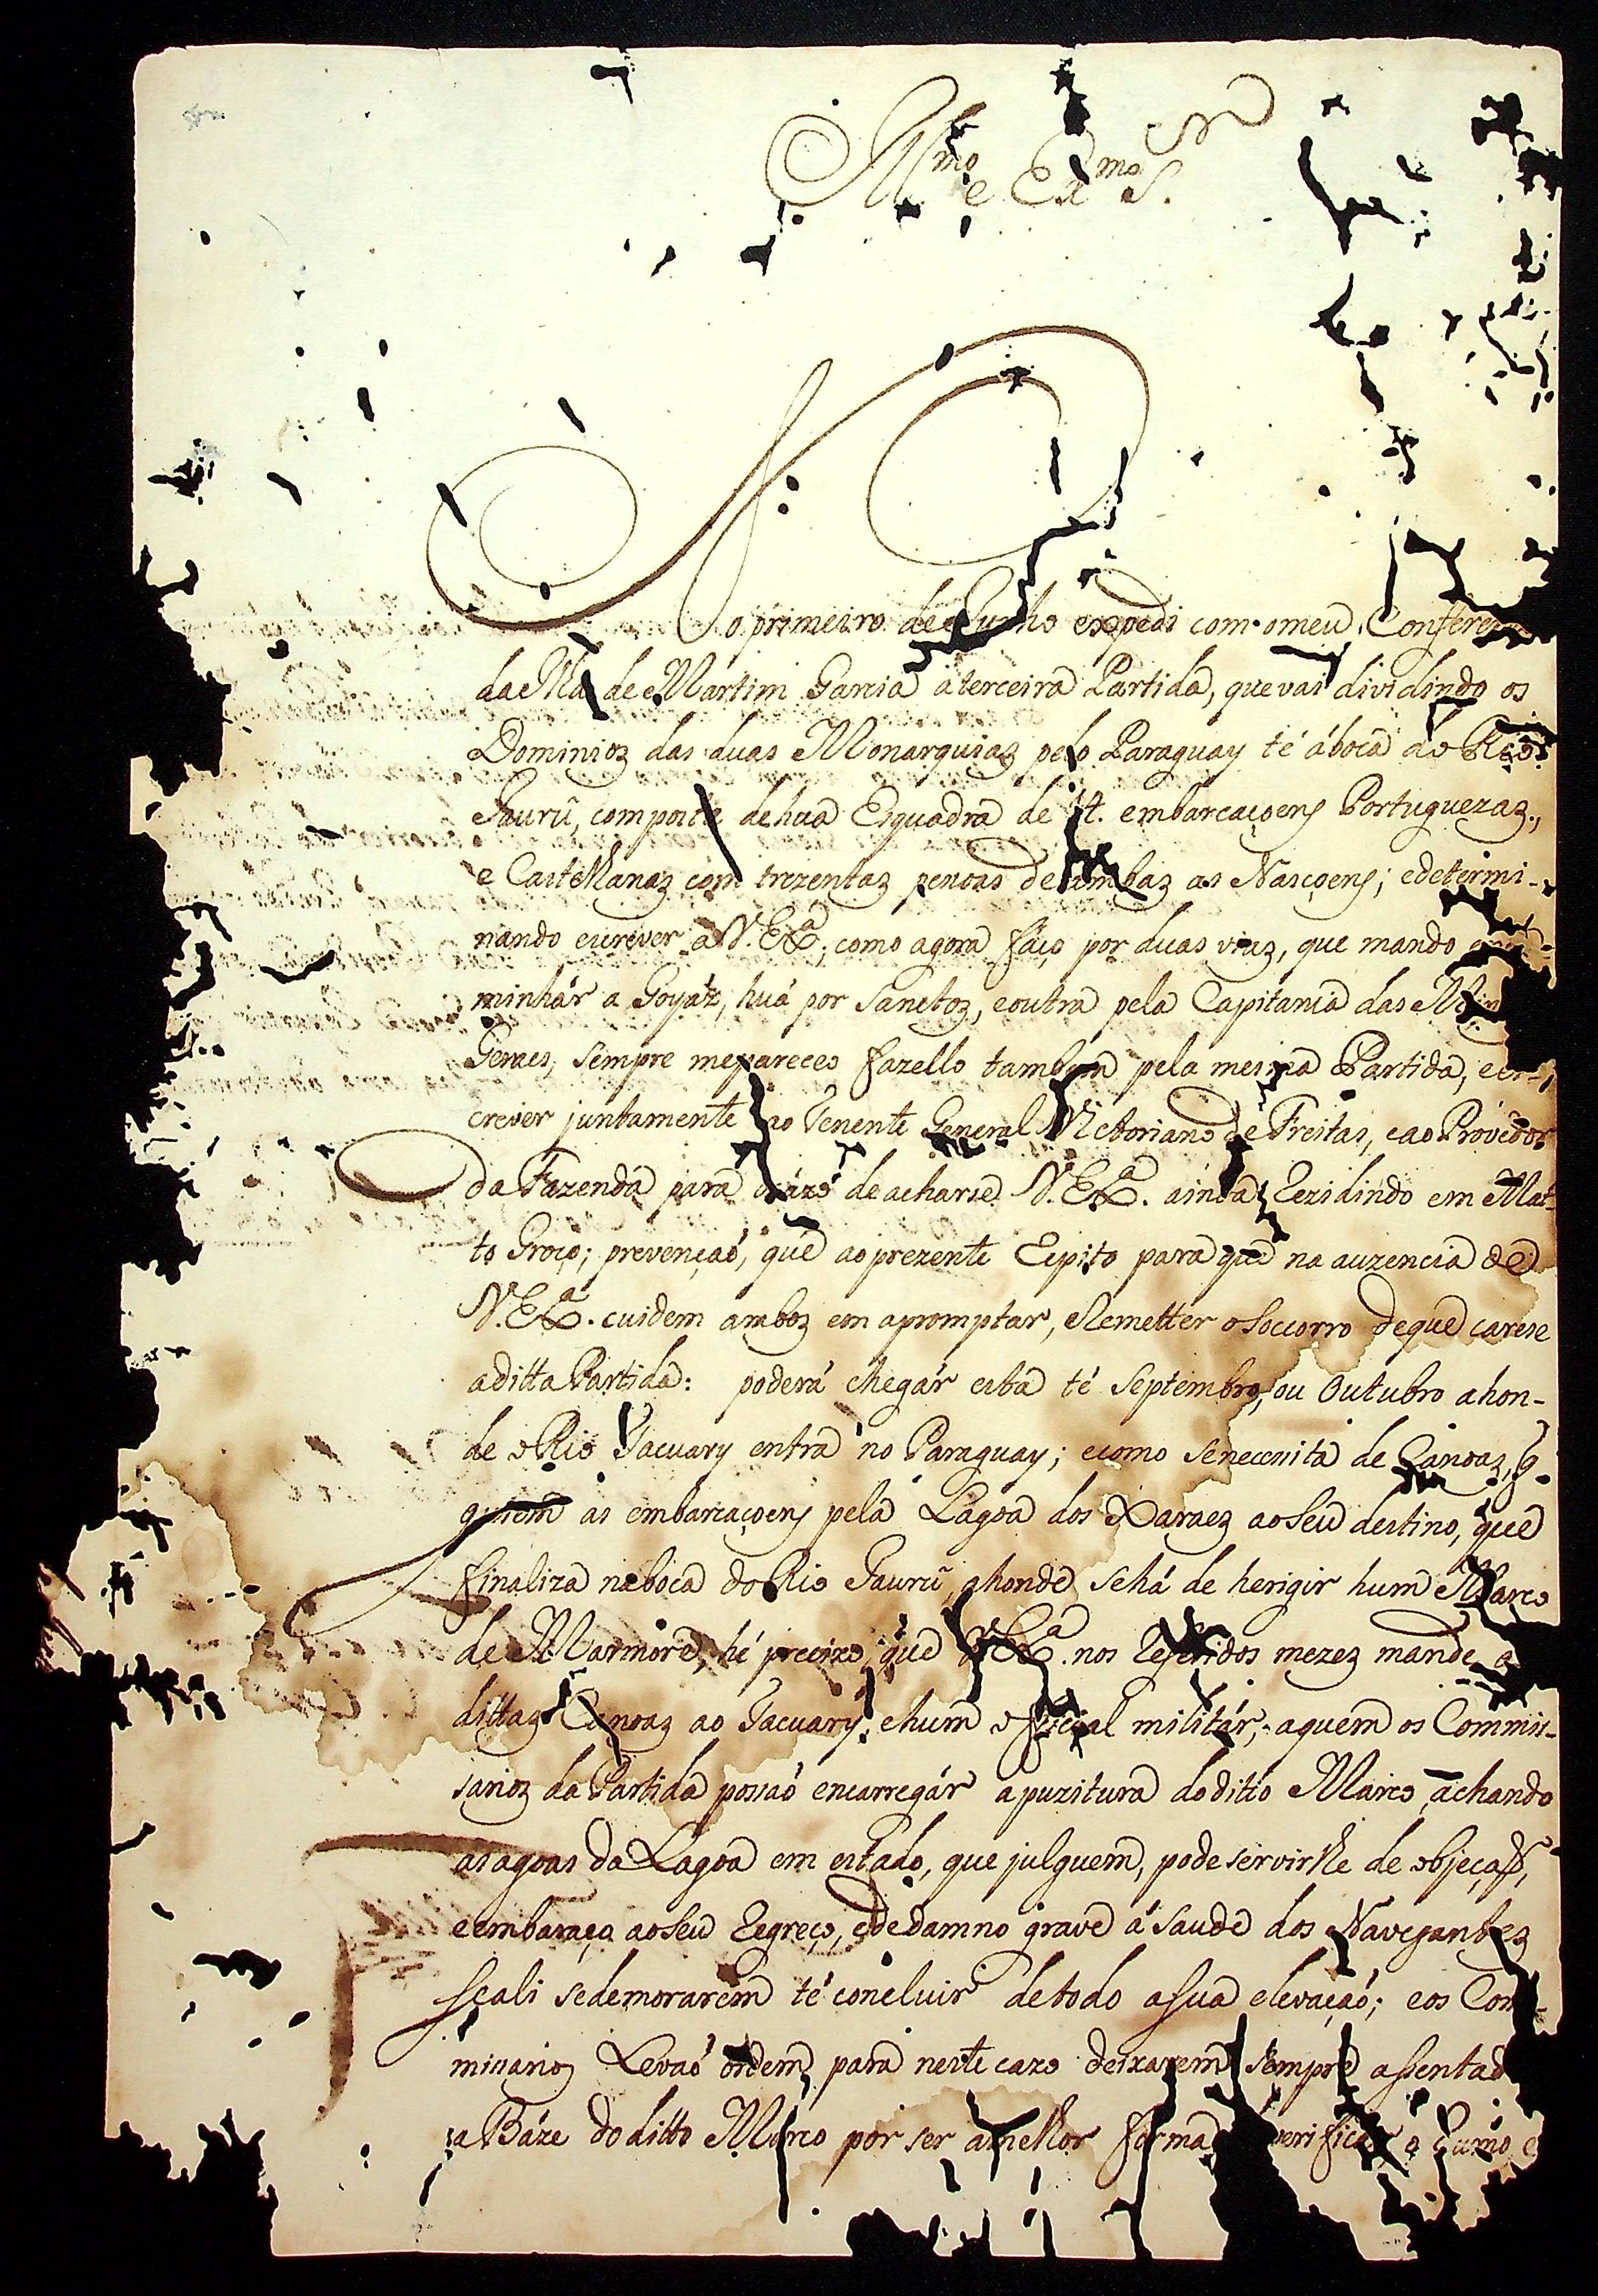 Ill.mo e Ex.mo S.r
No primeiro de Junho expedi com o meu Confere
da Ilha de Martim Garcia a terceira Partida, que vai dividindo os
Dominios das duas Monarquias pelo Paraguay té á boca do Rio
Jaurú, composta de hua Esquadra de 14. embarcaçoens Portuguezas,
e Castelhanas com trezentas pessoas de ambas as Nasçoens; e determi-
nando escrever a V. Ex.ª, como agora faço por duas vias, que mando
minhár a Goyáz, huá por Sanctos, e outra pela Capitania das Min
Geraes, sempre me pareceo fazello tambem pela mesma Partida, e es-
crever juntamente ao Tenente General Victoriano de Freitas, e ao Provedor
da Fazenda para o cázo de acharse V. Ex.ª ainda rezidindo em Mat-
to Groço; prevençaó, que ao prezente repito para que na auzencia de
V. Ex.ª cuidem ambos em apromptar, e remetter o soccorro de que carese
a ditta Partida: poderá chegár esta té Septembro, ou Outubro ahon-
de o Rio Tacuary entra no Paraguay; e como se necessita de Canoas, q
guiem as embarcaçoens pela Lagoa dos Xaraes ao seu destino, que
finaliza na boca do Rio Jaurú, ahonde se há de herigir hum Marco
de Marmore, hé precizo, que V. Ex.ª nos referidos mezes mande a
dittas Canoas ao Tacuary, e hum official militár, aquem os Commis-
sarios da Partida possaó encarregár a puzitura do ditto Marco, achando
as agoas da Lagoa em estado, que julguem, pode servirlhe de objeçaõ,
e embaraço ao seu regreço, e de damno grave á saude dos Navegantes
sçali se demorarem té concluir de todo a sua elevaçaó; e os Com-
missarios Levaó ordem para neste cazo deixarem sempre assentad
a Báze do ditto Marco por ser a melhor forma verificar o rumo e